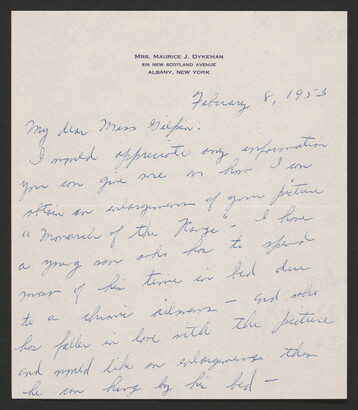 MRS. MAURICE J. DYKEMAN
819 NEW SCOTLAND AVENUE
ALBANY, NEW YORK
February 8, 1953
My dear Miss Gilpin.
I would appreciate any information
you can give me on how I can
obtain an enlargement of your picture
"Monarch of the Range". I have
a young son who has to spend
most of his time in bed due
to a chronic ailment — and who
has fallen in love with the picture
and would like an enlargement that
he can hang by his bed —